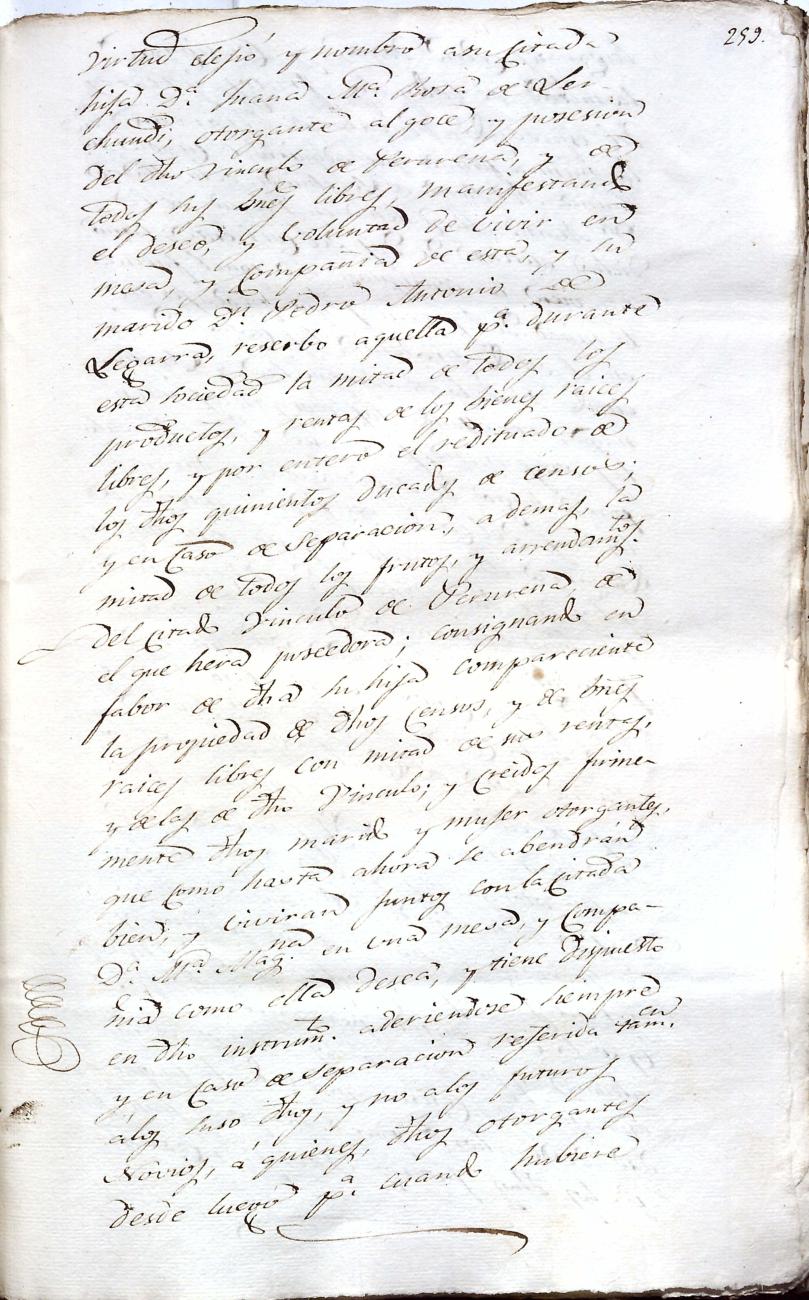 259.
virtud elejió y nombró a su citada
hija D.ª Juana M.ª Rosa de Ler-
chundi, otorgante al goce, y posesion
del dho vinculo de Verurena, y de
todos sus bnes libres, manifestando
el deseo, y voluntad de vivir en
mesa, y compañia de esta, y su
marido Dn. Pedro Antonio de
Legarra, reserbo aquella p.ª durante
esta sociedad la mitad de todos los
productos, y rentas de los bienes raices
libres, y por entero el redituado de
los dhos quinientos ducados de censos;
y en caso de separacion, ademas, la
mitad de todos los frutos, y arrendamtos.
del citado vinculo de Verurena de
el que hera poseedora; consignando en
fabor de dha su hija compareciente
la propiedad de dhos censos, y de bnes
raices libres con mitad de sus rentas,
y de las de dho vinculo; y creidos firme-
mente dhos marido y mujer otorgantes,
que como hasta ahora se abendrán
bien, y viviran juntos con la citada
D.ª M.ª Mag.na en una mesa, y compa-
ñia como ella desea, y tiene dispuesto
en dho instrumto. aderiendose siempre
y en caso de separacion referida tamcen.
á los suso dhos, y no a los futuros
Novios, á quienes, dhos otorgantes
desde luego p.ª cuando hubiere